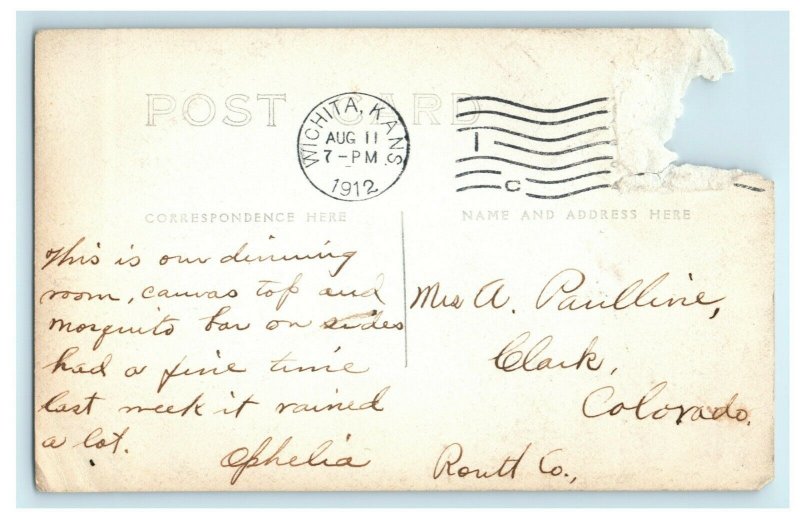 POST CARD
WICHITA, KANS.
AUG 11
7-PM
1912
1
C
CORRESPONDENCE HERE
NAME AND ADDRESS HERE
This is our dinning
room, canvas top and
mosquito bar on sides
had a fine time
last week it rained
a lot.
Ophelia
Mrs A. Paulline,
Clark,
Colorado.
Routt Co.,